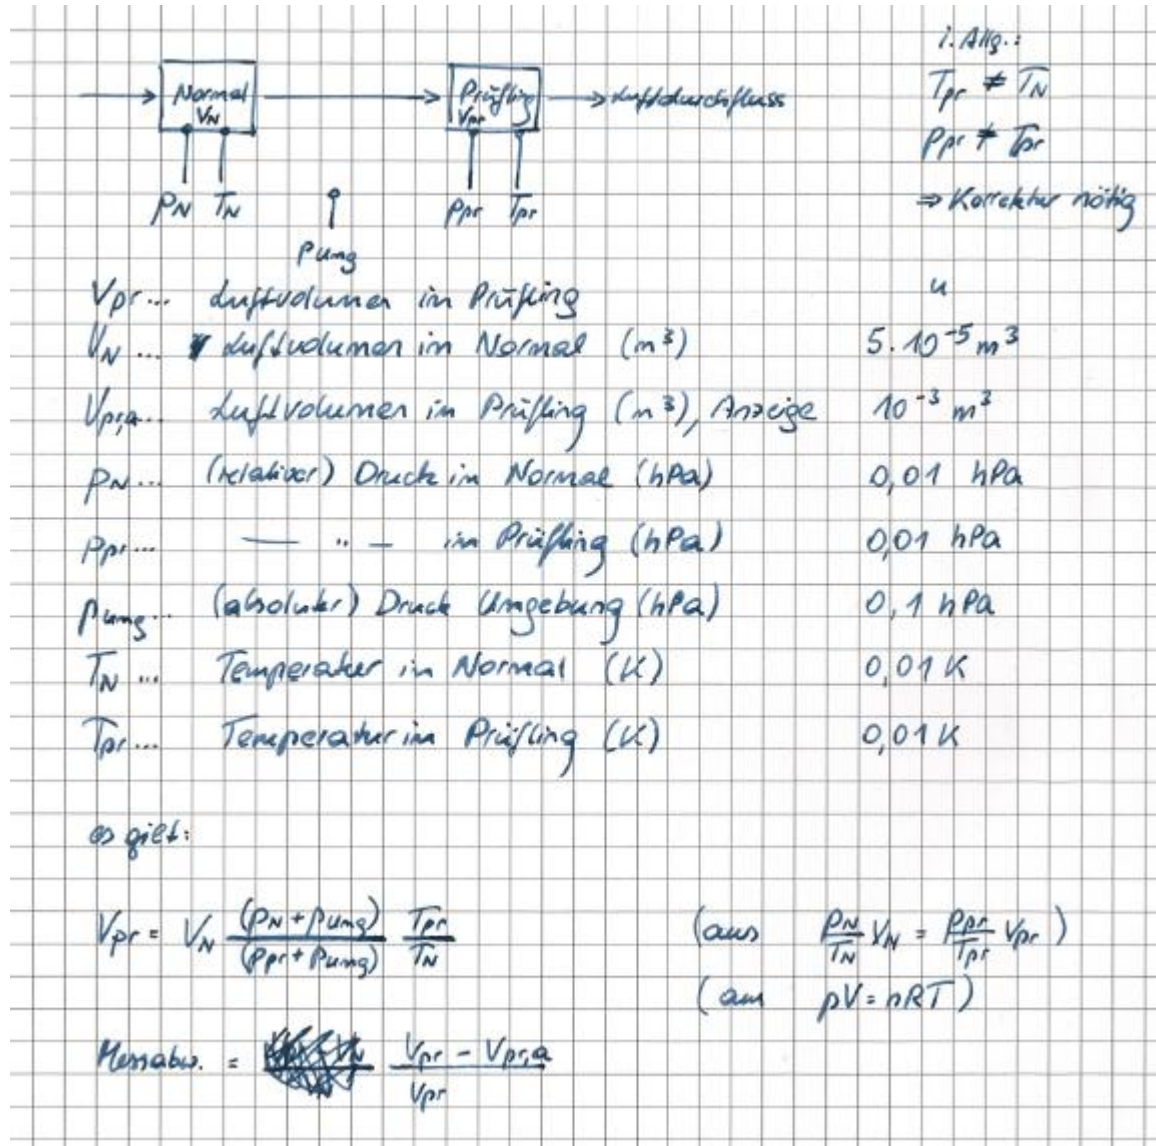 i. Allg.:
Normal
V_N
Prüfling
V_pr
Luftdurchfluss
T_pr ≠ T_N
p_pr ≠ T_pr
⇒ Korrektur nötig
p_N T_N
p_pr T_pr
p_umg
V_pr... Luftvolumen im Prüfling u
V_N ... Luftvolumen im Normal (m³) 5·10⁻⁵ m³
V_pr,a... Luftvolumen im Prüfling (m³), Anzeige 10⁻³ m³
p_N ... (relativer) Druck im Normal (hPa) 0,01 hPa
p_pr... — " — im Prüfling (hPa) 0,01 hPa
p_umg... (absoluter) Druck Umgebung (hPa) 0,1 hPa
T_N ... Temperatur im Normal (K) 0,01 K
T_pr... Temperatur im Prüfling (K) 0,01 K
es gilt:
V_pr = V_N (p_N + p_umg)/(p_pr + p_umg) T_pr/T_N (aus p_N/T_N V_N = p_pr/T_pr V_pr)
(aus pV = nRT)
Messabw. = (V_pr - V_pr,a)/V_pr